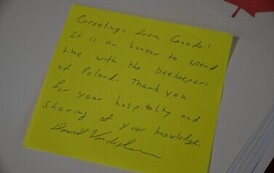 Greetings from Canada!
It is an honour to spend
time with the beekeepers
of Poland. Thank you
for your hospitality and
sharing of your knowledge.